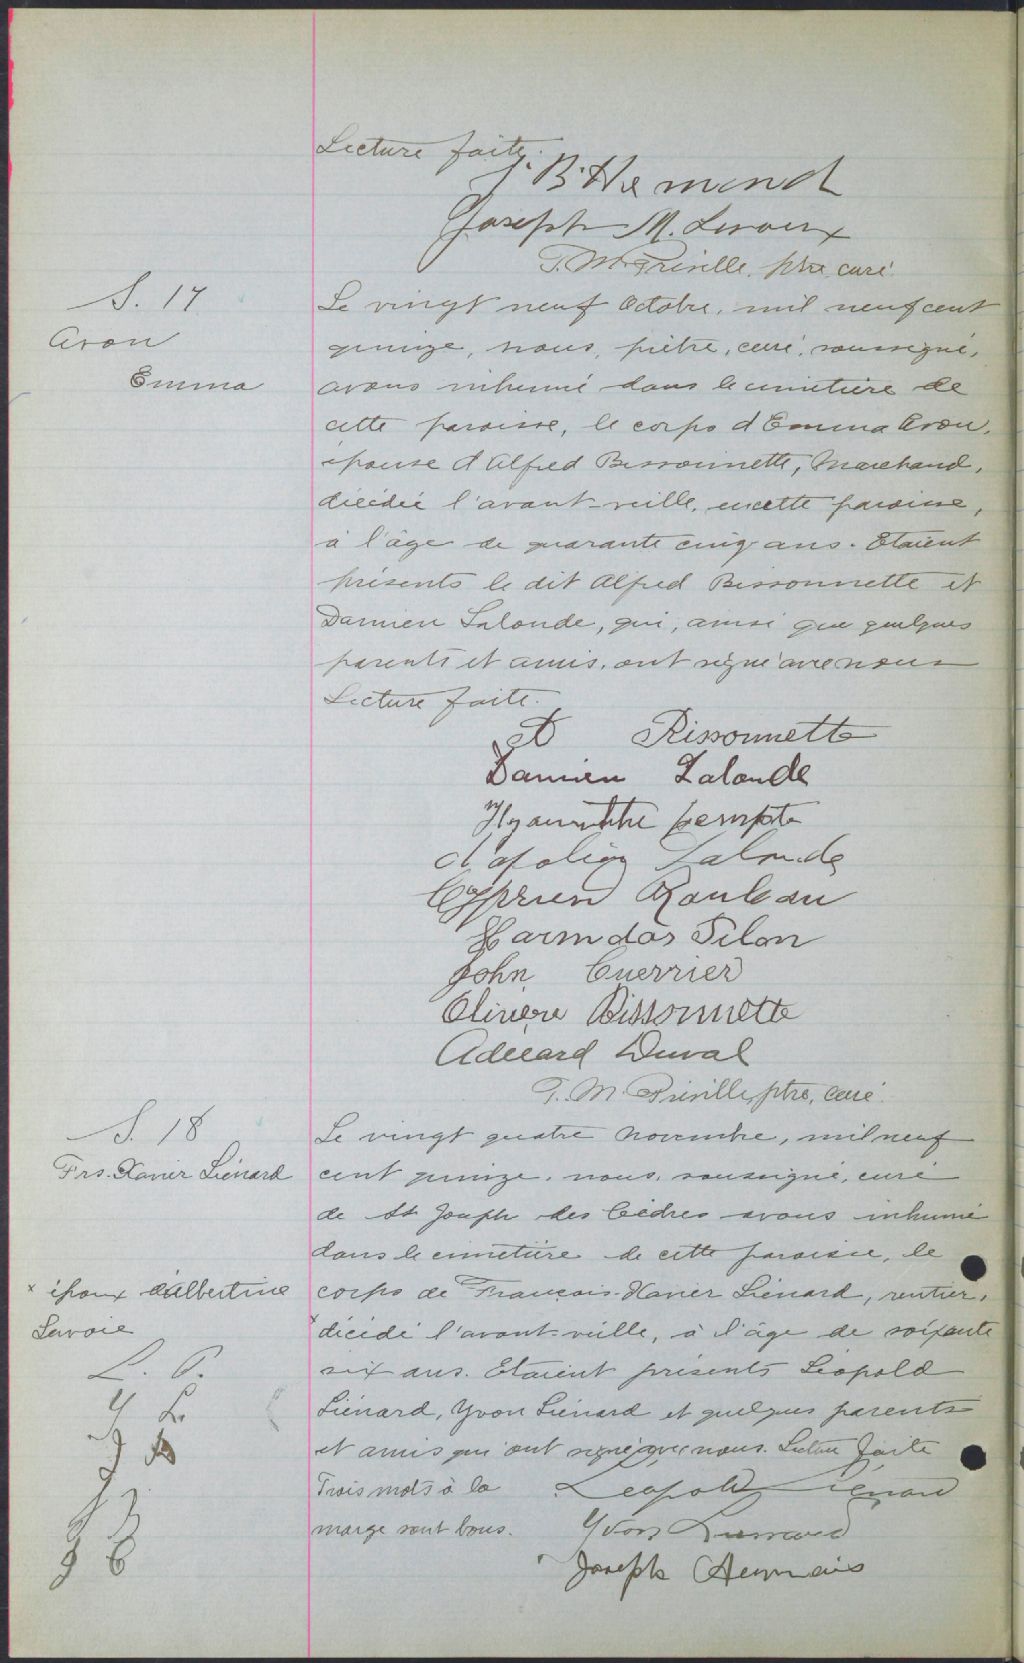 Lecture faite.
J. B. Hemond
Joseph M. Leroux
T. M. Préville, ptre, curé
S. 17
Avon
Emma
Le vingt neuf Octobre, mil neuf cent
quinze, nous, prêtre, curé, soussigné,
avons inhumé dans le cimetière de
cette paroisse, le corps d'Emma Avon,
épouse d'Alfred Bissonnette, Marchand,
décédée l'avant-veille, en cette paroisse,
à l'âge de quarante cinq ans. Etaient
présents le dit Alfred Bissonnette et
Damien Lalonde, qui, ainsi que quelques
parents et amis, ont signé avec nous
Lecture faite.
A Bissonnette
Damien Lalonde
Hyacinthe
Lalonde
Cyprien Rouleau
Harmidas Pilon
John Cuerrier
Olivière Bissonnette
Adelard Duval
T. M. Préville, ptre, curé.
S. 18
Frs. Xavier Liénard
Le vingt quatre Novembre, mil neuf
cent quinze, nous, soussigné, curé
de St Joseph des Cèdres avons inhumé
dans le cimetière de cette paroisse, le
corps de François-Xavier Liénard, rentier,
x époux d'Albertine
Savoie
x décédé l'avant-veille, à l'âge de soixante
six ans. Etaient présents Léopold
Liénard, Yvon Liénard et quelques parents
et amis qui ont signé avec nous. Lecture faite
L.
Y L.
Trois mots à la
marge sont bons.
Léopold Liénard
Yvon Lienard
Joseph